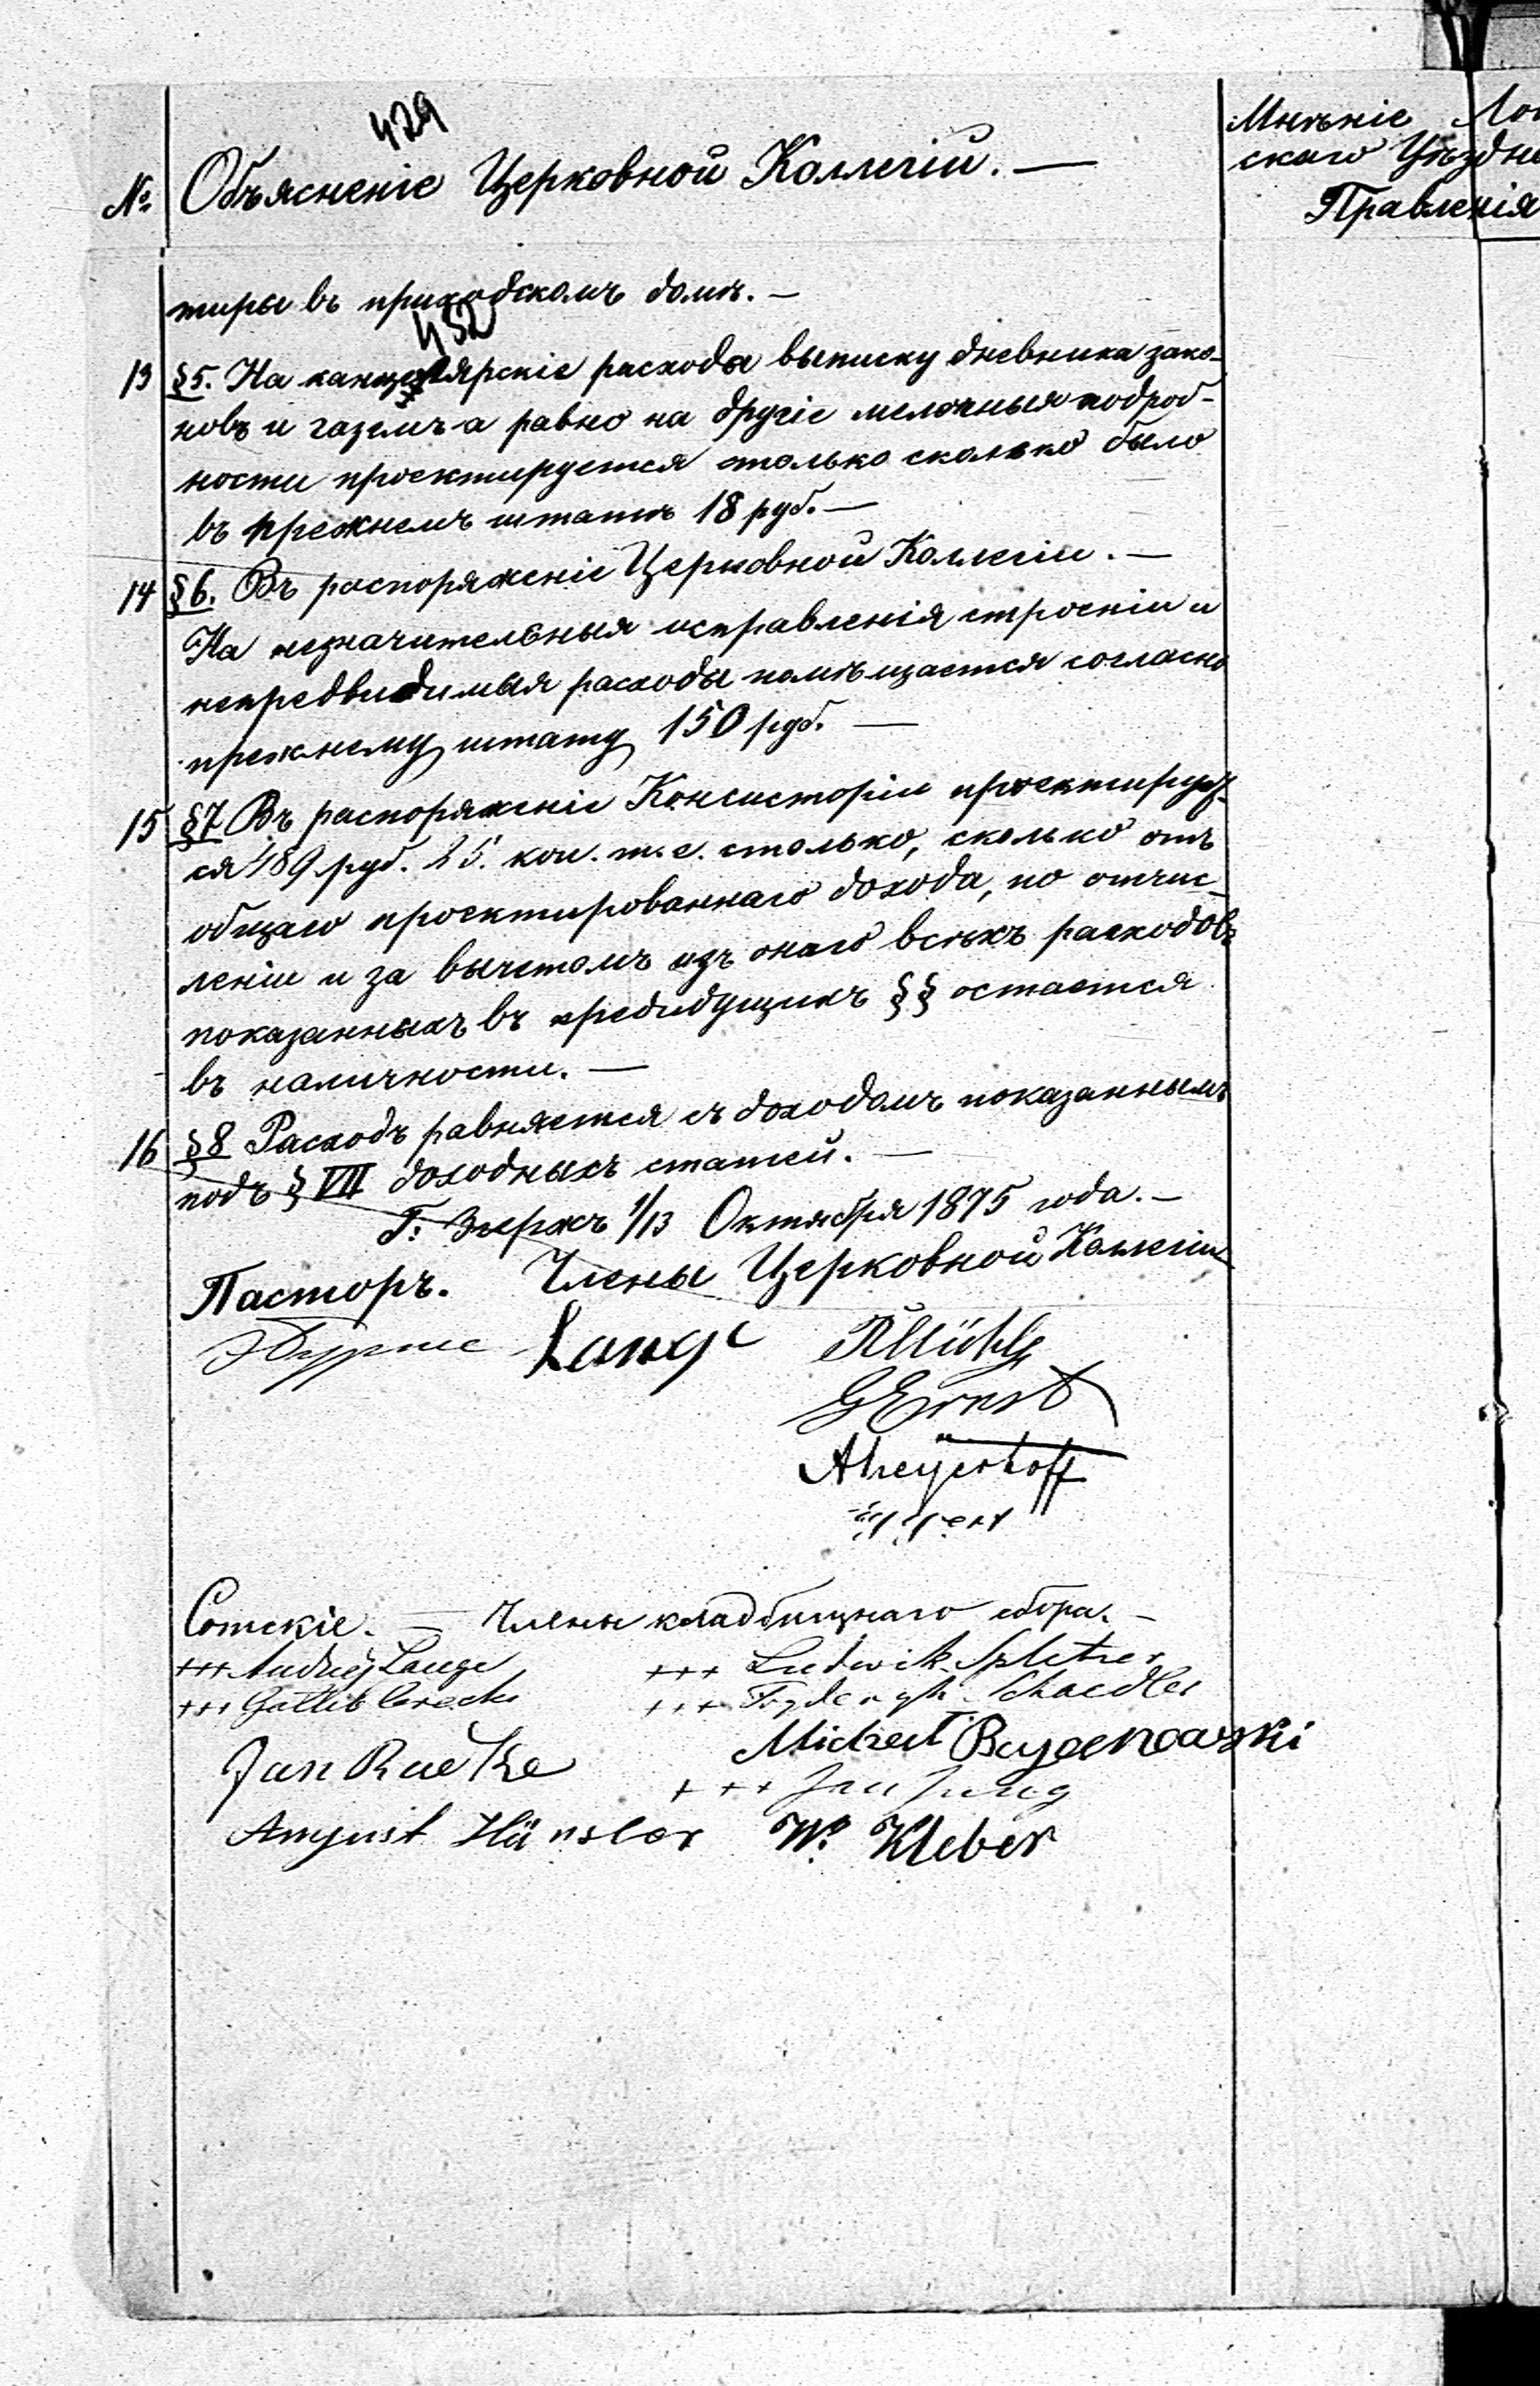 429
№ Объясненіе Церковной Коллегіи. —
Мнѣніе
скаго Уѣздн
Правленія
тиры въ приходскомъ домѣ. —
13 §5. На канцелярскіе расходы выписку дневника зако-
новъ и газетъ а равно на другіе мелочныя подроб-
ности проектируется столько сколько было
въ прежнемъ штатѣ 18 руб. —
14 §6. Въ распоряженіе Церковной Коллегіи. —
На незначительныя исправленія строеніи и
непредвидимыя расходы помѣщается согласно
прежнему штату 150 руб. —
15 §7 Въ распоряженіе Консисторіи проектирует-
ся 489 руб. 25 коп. т. е. столько, сколько отъ
общаго проектированнаго дохода, по отчис-
леніи и за вычетомъ изъ онаго всѣхъ расходовъ
показанныхъ въ предидущихъ §§ остается
въ наличности. —
16 §8 Расходъ равняется съ доходомъ показаннымъ
подъ § VII доходныхъ статей. —
Г. Згержъ 1/13 Октября 1875 года. —
Пасторъ. Члены Церковной Коллегіи
Lange RMühle
GErnst
AMeyerhoff
Сотскіе. — Члены кладбищнаго сбора. —
+++ Andrzej Lange +++ Ludwik Spletzer
+++ Gottlib +++ Schaedler
Jan Radke Michael
+++ Jan Jung
August Hänsler W. Kleber